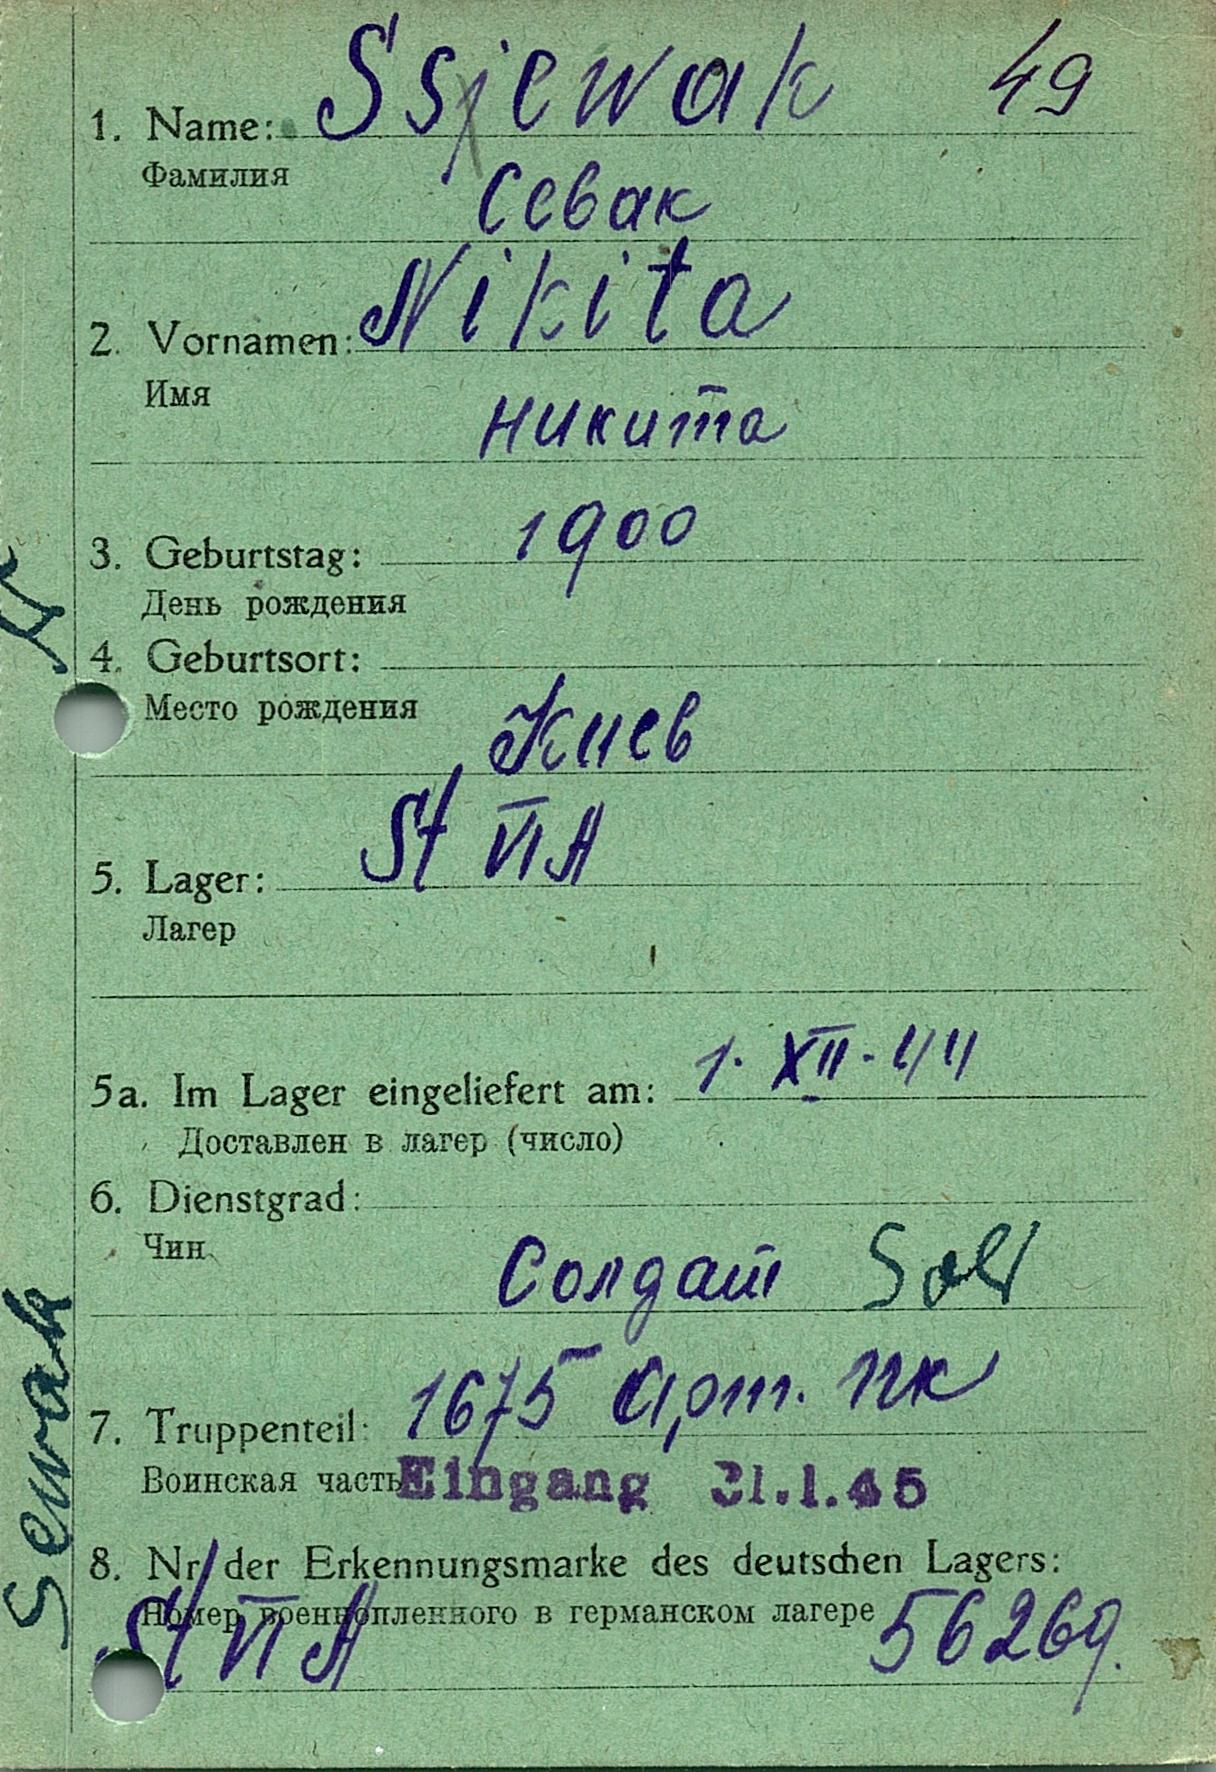 Ssjewak 49
1. Name:
Фамилия
Севак
Nikita
2. Vornamen:
Имя
Никита
1900
3. Geburtstag:
День рождения
4. Geburtsort:
Место рождения
Киев
St VI A
5. Lager:
Лагер
5a. Im Lager eingeliefert am: 1. XII. 44
Доставлен в лагер (число)
6. Dienstgrad:
Чин
Солдат Sold
1675 Арт. пк
7. Truppenteil:
Воинская часть Eingang 31.1.45
8. Nr. der Erkennungsmarke des deutschen Lagers:
Номер военнопленного в германском лагере
St VI A 56269.
Sewak